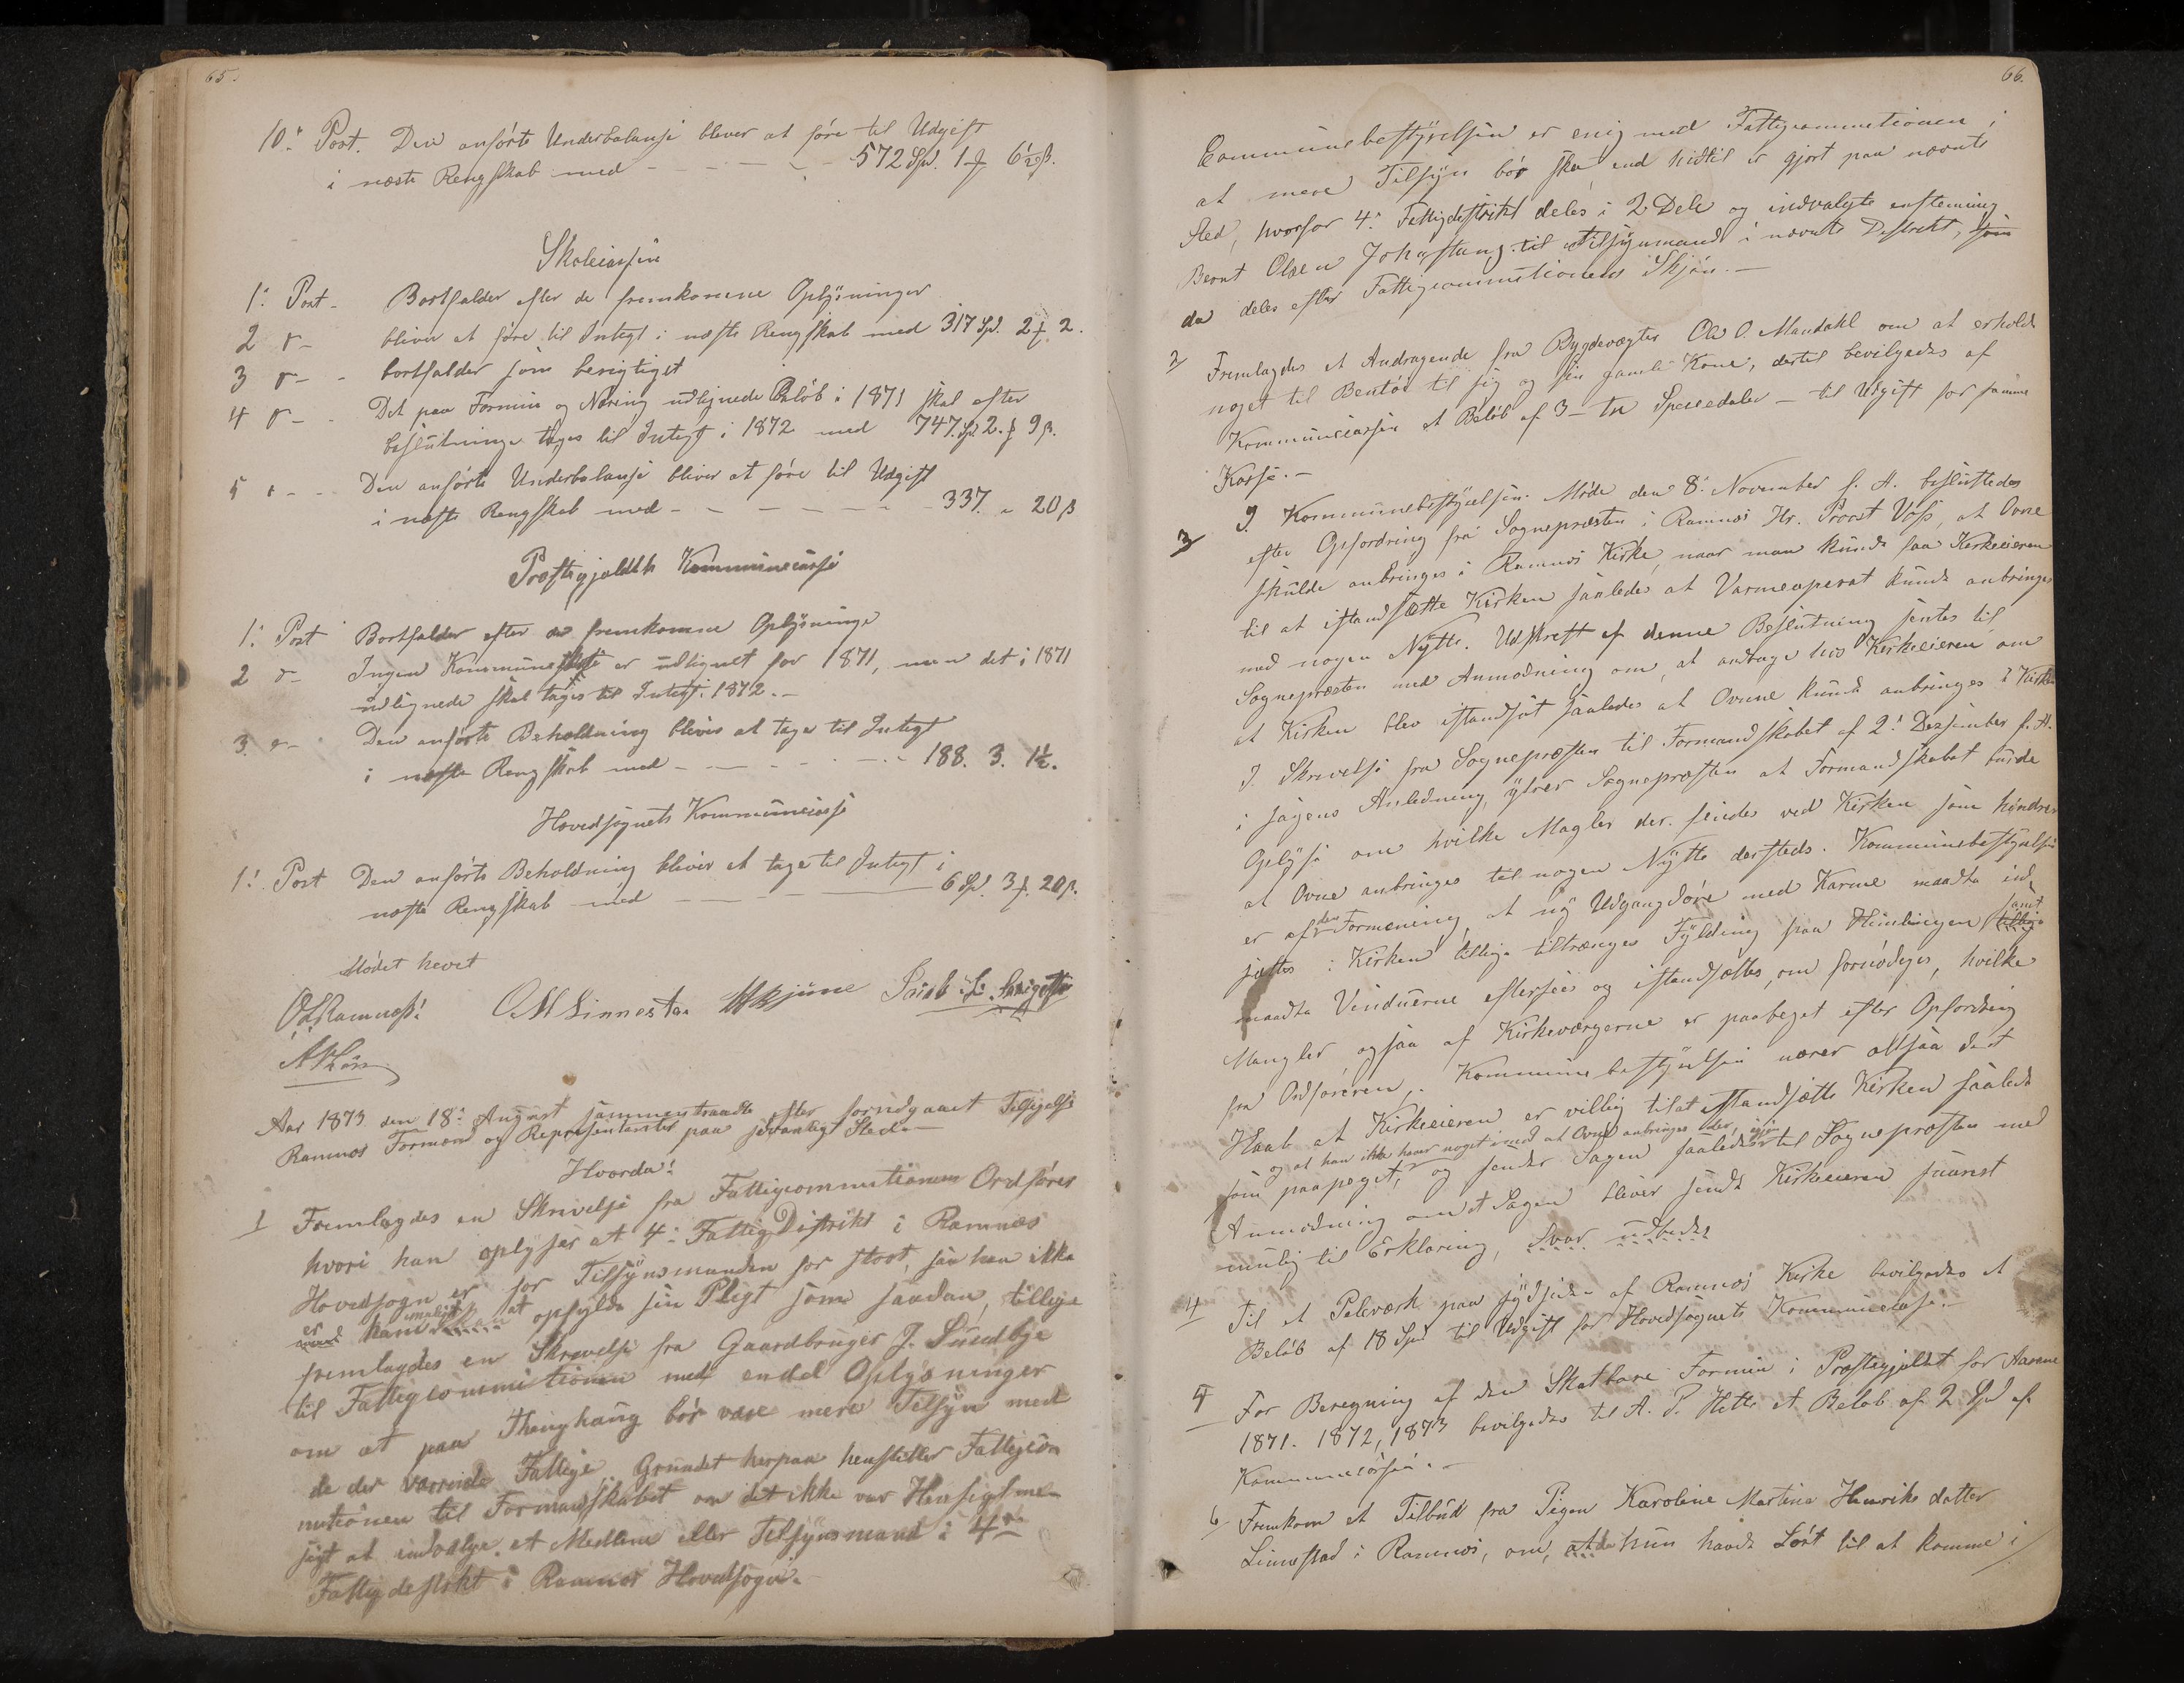 65.
10.' Post. Den anførte Underbalanse bliver at føre til Udgift
i næste Rengskab med - - - - 572 Spd. 1 f 6½ ß.
Skolecassen
1.' Post - Bortfalder efter de fremkomne Oplysninger
2 d - bliver at føre til Indtegt i næste Rengskab med 317 Sp. 2 f. 2.
3 d - - bortfalder som berigtiget
4 d - - Det paa Formue og Næring udlignede Beløb i 1871 skal efter
beslutninge tages til Indtegt i 1872 med 747. Sp. 2. f 9 ß.
5 d - - Den anførte Underbalanse bliver at føre til Udgift
i næste Rengskab med - - - - - - - 337. " 20 ß
Præstegjeldets Kommunecasse
1.' Post Bortfalder efter de fremkomne Oplysninge
2 d - Ingen Kommuneskat er udlignet for 1871, men det i 1871
udlignede skal tages til Indtegt i 1872. -
3. d - Den anførte Beholdning bliver at tage til Indtegt
i næste Rengskab med - - - - - - 188. 3. 1½.
Hovedsognets Kommunecasse
1.' Post Den anførte Beholdning bliver at tage til Indtegt i
næste Rengskab med - - - 6 Spd. 3 f. 20 ß.
Mødet hevet
O. L. Ramnæs! O M Linnestad Jacob
Aar 1873 den 18.' August sammentraadte efter forudgaaet Tilsigelse
Ramnæs Formænd og Repræsentanter paa sedvanligt Sted. -
Hvorda!
1 Fremlagdes en Skrivelse fra Fattigcommitionens Ordfører
hvori han oplyser at 4.' Fattig Distrikt i Ramnæs
Hovedsogn er for Tilsynsmanden for stort, saa han ikke
er han umuligt at opfylde sin Pligt som saadan, tillige
fremlagdes en Skrivelse fra Gaardbruger J. Sundbye
til Fattigcommitionen med endel Oplysninger
om at paa Thenghaug bør være mere Tilsyn med
de der værende Fattige. Grundet herpaa henstiller Fattigcom
mitionen til Formandskabet om det ikke var Hensigtme-
sigt at indvælge et Medlem eller Tilsynsmand i 4.de
Fattigdistrikt i Ramnæs Hovedsogn. -
66.
Communebestyrelsen er enig med Fattigcommitionen i
at mere Tilsyn bør ske end hidtil er gjort paa nævnte
Sted, hvorfor 4.' Fattigdistrikt deles i 2 Dele og indvalgte enstemmig
Bernt Olsen til Tilsynsmand i nævnte Distrikt, som
da deles efter Fattigcommitionens Skjøn. -
2 Fremlagdes et Andragende fra Bygdevægter Ole O. Mandahl om at erholde
noget til Bentøi til sig og sin gamle Kone, dertil bevilgedes af
Kommunecassen et Beløb af 3 - tre Speciedaler - til Udgift for samme
Kasse. -
3 I Kommunebestyrelsens Møde den 8.' November f. A. besluttedes
efter Opfordring fra Sognepresten i Ramnæs Hr. Provst Voss, at Ovne
skulde anbringes i Ramnæs Kirke, naar man kunde faa Kirkeeieren
til at istandsætte Kirken saaledes at Varmeaperat kunde anbringes
med nogen Nytte. Udskrift af denne Beslutning sentes til
Sognepresten med Anmodning om, at andrage hos Kirkeeieren om
at Kirken blev istandsat saaledes at Ovnene kunde anbringes i Kirken
I Skrivelse fra Sognepresten til Formandskabet af 2.' Desember f. A.
i sagens Anledning, ytrer Sognepresten at Formandskabet burde
Oplyse om hvilke Magler der findes ved Kirken som hindrer
at Ovne anbringes til nogen Nytte dersteds. Kommunebestyrelsen
er af den Formening, at ny Udgangdøre med Karme maadte ind-
settes i Kirken tillige tiltrænges Fylding paa Himlingen samt
maadte Vinduerne eftersees og istandsettes, om fornødeges, hvilke
Mangler, ogsaa af Kirkeværgerne er paabeget efter Opfordring
fra Ordføreren. Kommunebestyrelsen nærer altsaa det
Haab at Kirkeeieren er villig til at istandsætte Kirken saaledes
og at han ikke haver noget imod at Ovne anbringes der,
som paapeget, og sender Sagen saaledes til Sognepresten med
Anmodning om at Sagen bliver sendt Kirkeeieren snarest
mulig til Erklæring, Svar udbedes
4 Til et Peleværk paa sydsiden af Ramnæs Kirke bevilgedes et
Beløb af 18 Spd til Udgift for Hovedsognets Kommunecasse. -
5 For Beregning af den Skatbare Formue i Præstegjeldet for Aarene
1871. 1872, 1873 bevilgedes til A. P. Hette et Beløb af 2 Spd af
Kommunecassen. -
6 Fremkom et Tilbud fra Pigen Karoline Martine Henriks datter
Linnestad i Ramnæs, om, at da hun havde Løst til at komme i